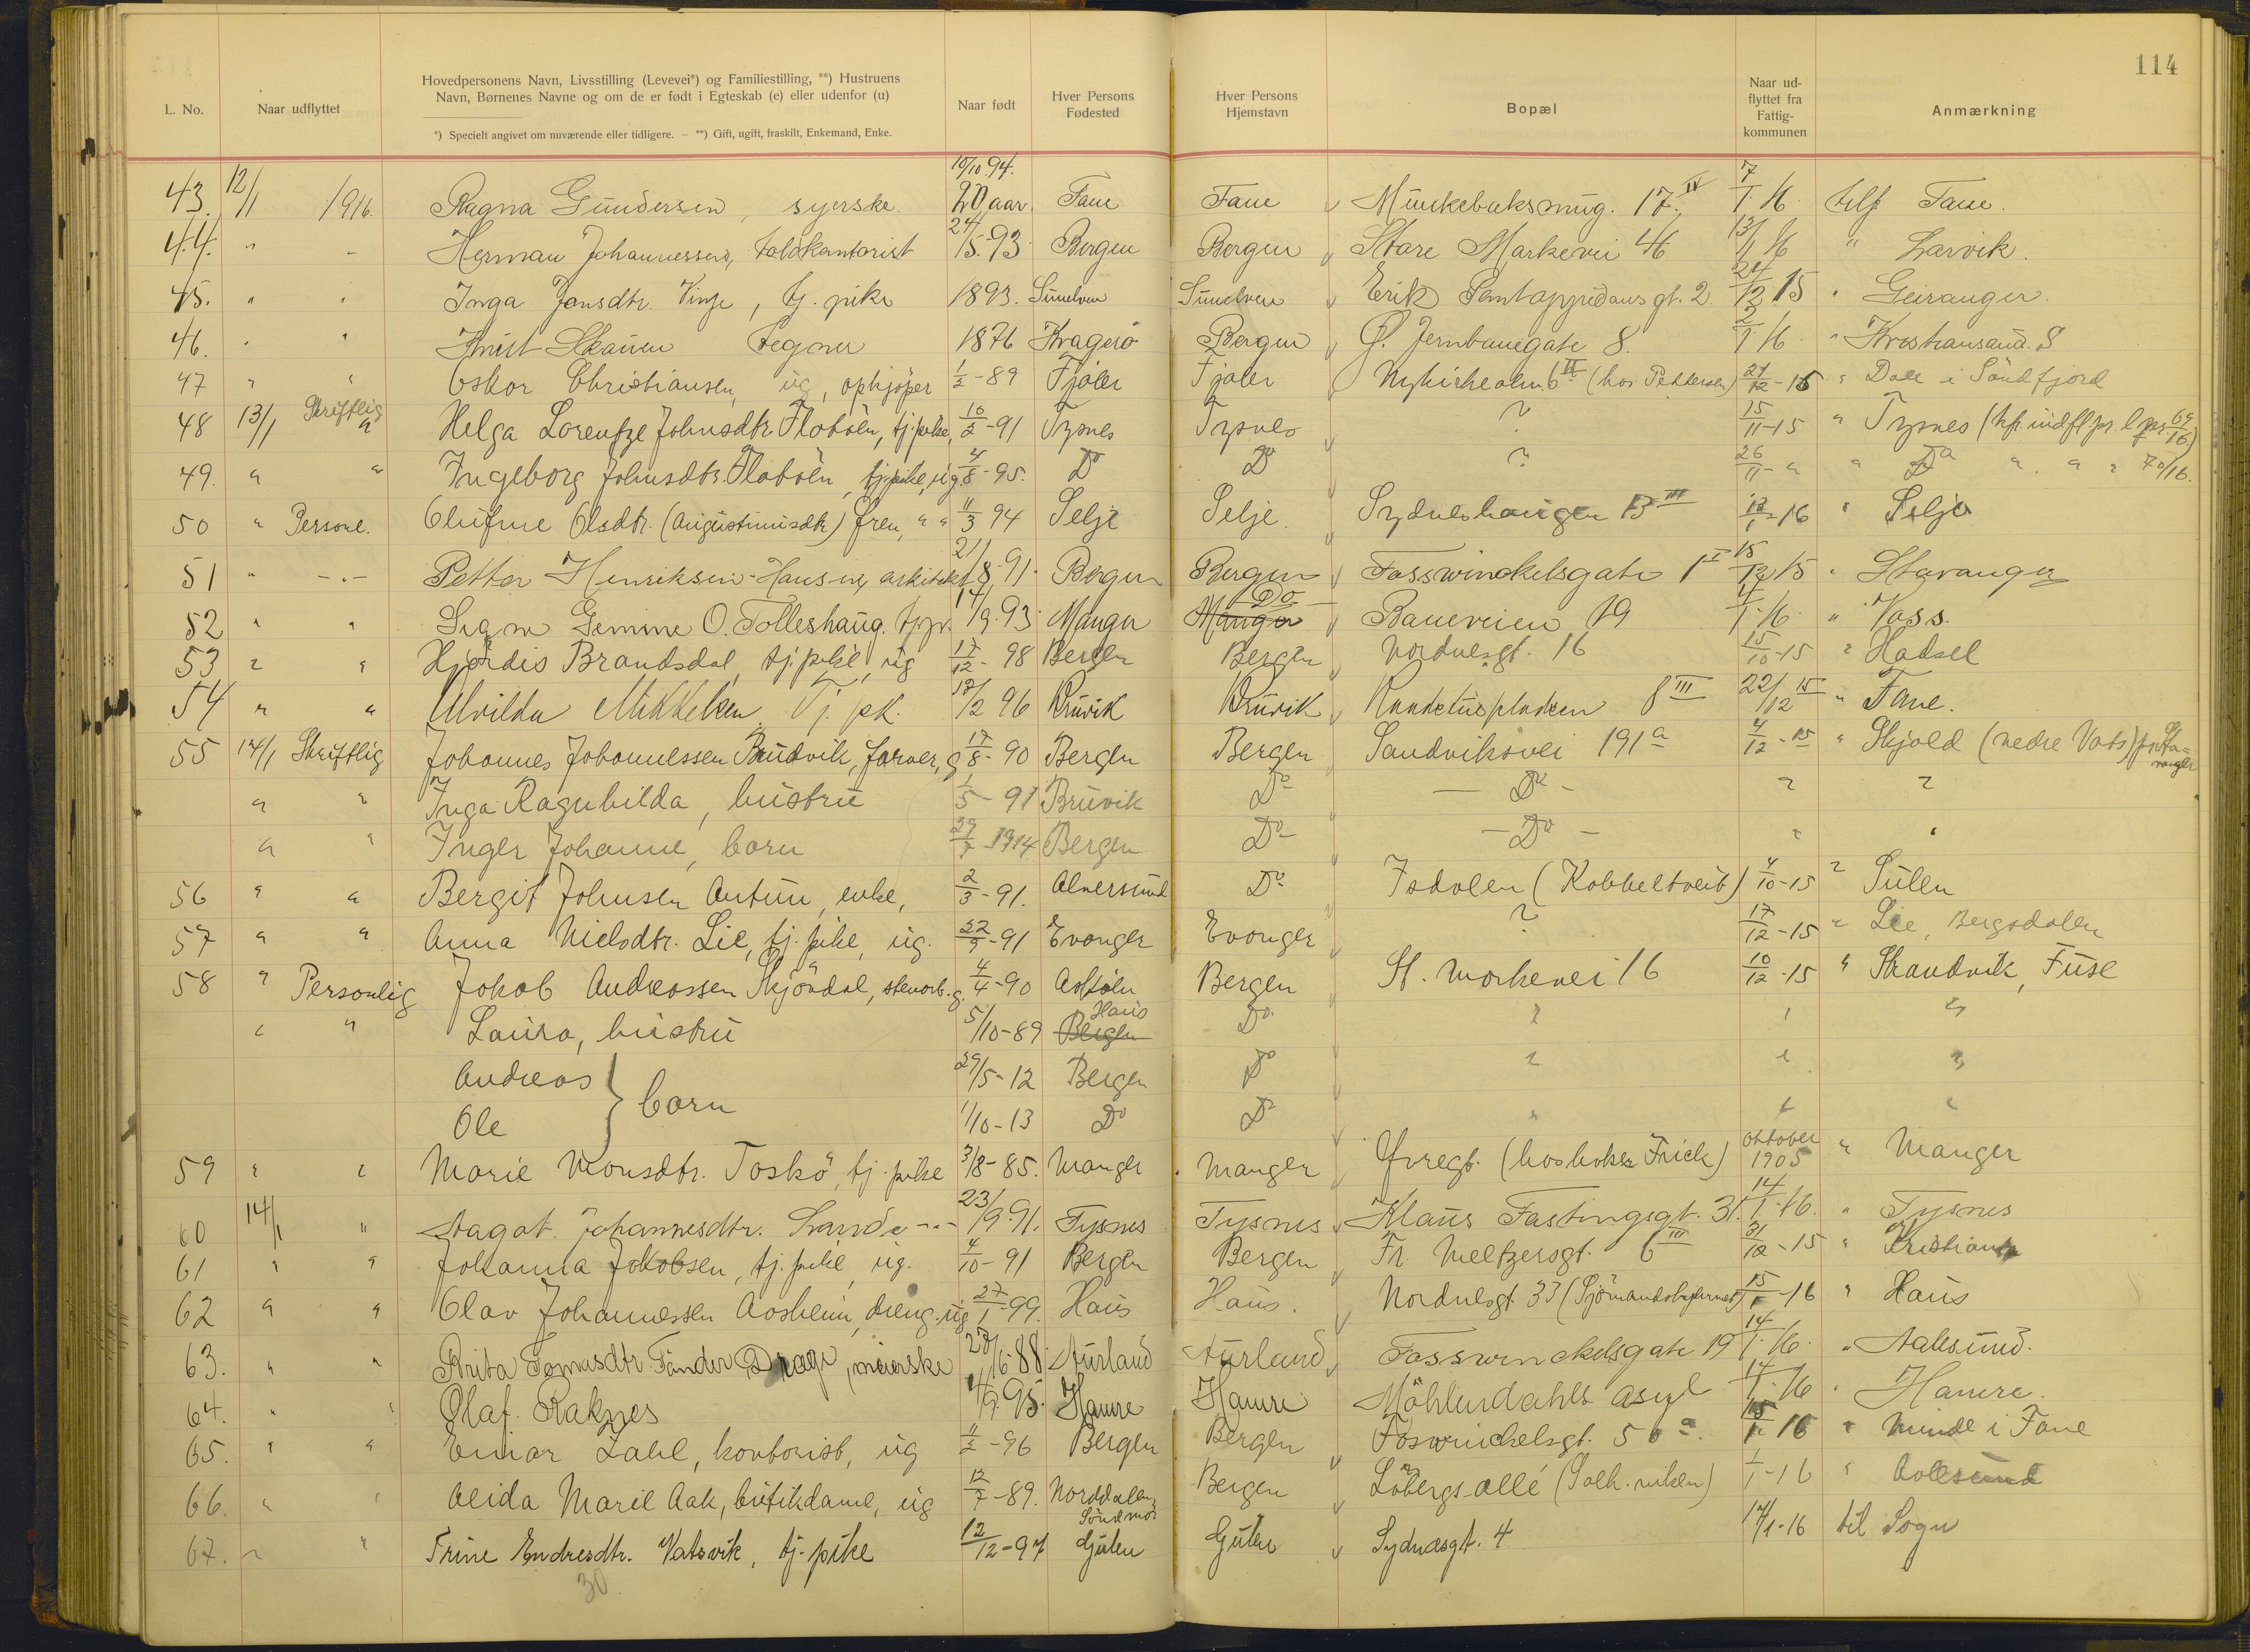 114
L. No. Naar udflyttet Hovedpersonens Navn, Livsstilling (Levevei*) og Familiestilling, **) Hustruens Navn, Børnenes Navne og om de er født i Egteskab (e) eller udenfor (u) Naar født Hver Persons Fødested Hver Persons Hjemstavn Bopæl Naar udflyttet fra Fattigkommunen Anmærkning
*) Specielt angivet om nuværende eller tidligere. — **) Gift, ugift, fraskilt, Enkemand, Enke.
43. 12/1 1916. Ragna Gundersen, syerske. 10/10 94. 20 aar. Fane Fane Munkebæksmug. 17 IV 7/1 16. til Fane.
44. " - Herman Johannessen, toldkontorist 24/5-93 Bergen Bergen Store Markevei 46 13/1 16 " Larvik.
45. " " Inga Jonsdtr. Vinje, tj. pike 1893. Sunelven Sunelven Erik Pontoppidans gt. 2. 12 15 " Geiranger.
46. " " Knut Skauen Tegner 1876 Kragerö Bergen Ø. Jernbanegate 8. 2/1 16 " Kristiansand. S
47 " " Oskar Christiansen, ug, opkjöper 1/2-89 Fjaler Fjaler Nykirkealm. 6 II (hos Pettersen) 27/12-15 " Dale i Söndfjord
48 13/1 Skriftlig Helga Lorentze Johnsdtr Flotoën, tj. pike, 10/2-91 Tysnes Tysnes ? 15/11-15 " Tysnes (kfr. indfl. pr. l. 69/16.)
49. " " Ingeborg Johnsdtr. Flotoën, tj. pike, ug 4/8-95. Do Do ? 26/11- " " Do " " " 70/16.
50 " Personl. Olufine Olsdtr. (Augustinusdtr) fren, " " 11/3 94 Selje Selje Sydneshaugen 13 III 12/1-16 " Selje
51 " -"- Petter Henriksen-Hansen, arkitekt 21/8-91. Bergen Bergen Fosswinckelsgate 1 I 15/12 15 " Stavanger
52 " " Signe Gemine O. Tolleshaug. tj.p. 17/9-93. Manger Manger Do Baneveien 19 4/1-16. " Voss.
53 " " Hjördis Brandsdal, tj. pike, ug 17/12-98 Bergen Bergen Nordnesgt. 16 15/10-15 " Hadsel
54 " " Alvilda Mikkelsen. Tj. pk. 18/2 96 Bruvik Bruvik 8 III 22/12 15 " Fane.
55 14/1 Skriftlig Johannes Johannessen Brudvik, farver, g 17/8-90 Bergen Bergen Sandviksvei 191 a 4/12-15 " Skjold (nedre Vats) pr Stavanger
" " Inga Ragnhilda, hustru 1/5-91 Bruvik Do — Do - " "
" " Inger Johanne, barn 29/7-1914 Bergen Do — Do — " "
56 " " Bergit Johnsen Antun, enke, 2/3-91. Alversund Do Isdalen (Kobbeltveit) 4/10-15 " Sulen
57 " " Anna Nielsdtr. Lie, tj. pike, ug. 22/9-91 Evanger Evanger ? 17/12-15 " Lie, Bergsdalen
58 " Personlig Jakob Andreassen Skjöndal, stenarb. g. 4/4-90 Bergen St. Markevei 16 10/12-15 " Strandvik, Fuse
" " Laura, hustru 5/10-89 Bergen Haus Do " " "
Andreas } barn 29/5-12 Bergen Do " " "
Ole 1/10-13 Do Do " " "
59 " " Marie Monsdtr. Toskö, tj. pike 3/8-85. Manger Manger Øvregt. (hos baker Frick) oktober 1905 " Manger
60 14/1 " Aagot Johannesdtr. Lande -"- 23/9-91. Tysnes Tysnes Klaus Fastingsgt. 31. 14/1-16. " Tysnes
61 " " Johanna Jakobsen, tj. pike, ug. 4/10-91 Bergen Bergen Fr. Meltzersgt. 6 III 31/12-15 " Kristiania
62 " " Olav Johannessen Aasheim, dreng, ug 27/1-99. Haus Haus. Nordnesgt 33 (Sjömandshjemmet) 15/1-16 " Haus
63. " " Brita Tomasdtr. Tönder Drage, 28/6-88. Aurland Aurland Fosswinckelsgate 19 14/1 16. " Aalesund.
64. " " Olaf Raknes 4/9-95. Hamre Hamre Möhlendahls asyl 14/1-16 " Hamre.
65. " " Einar Zahl, kontorist, ug 11/2-96 Bergen Bergen Foswinckelsgt. 50 a. 15/1 16 " Minde i Fane
66. " " Alida Marie Aak, butikdame, ug 12/7-89. Norddalen, Söndmör Bergen Löbergs-allé (Solh. viken) 1/1-16 " Aalesund
67. " " Trine Endresdtr. Vatsvik, tj. pike 12/12-97 Gulen Gulen Sydnesgt. 4 14/1-16 til Sogn
30.